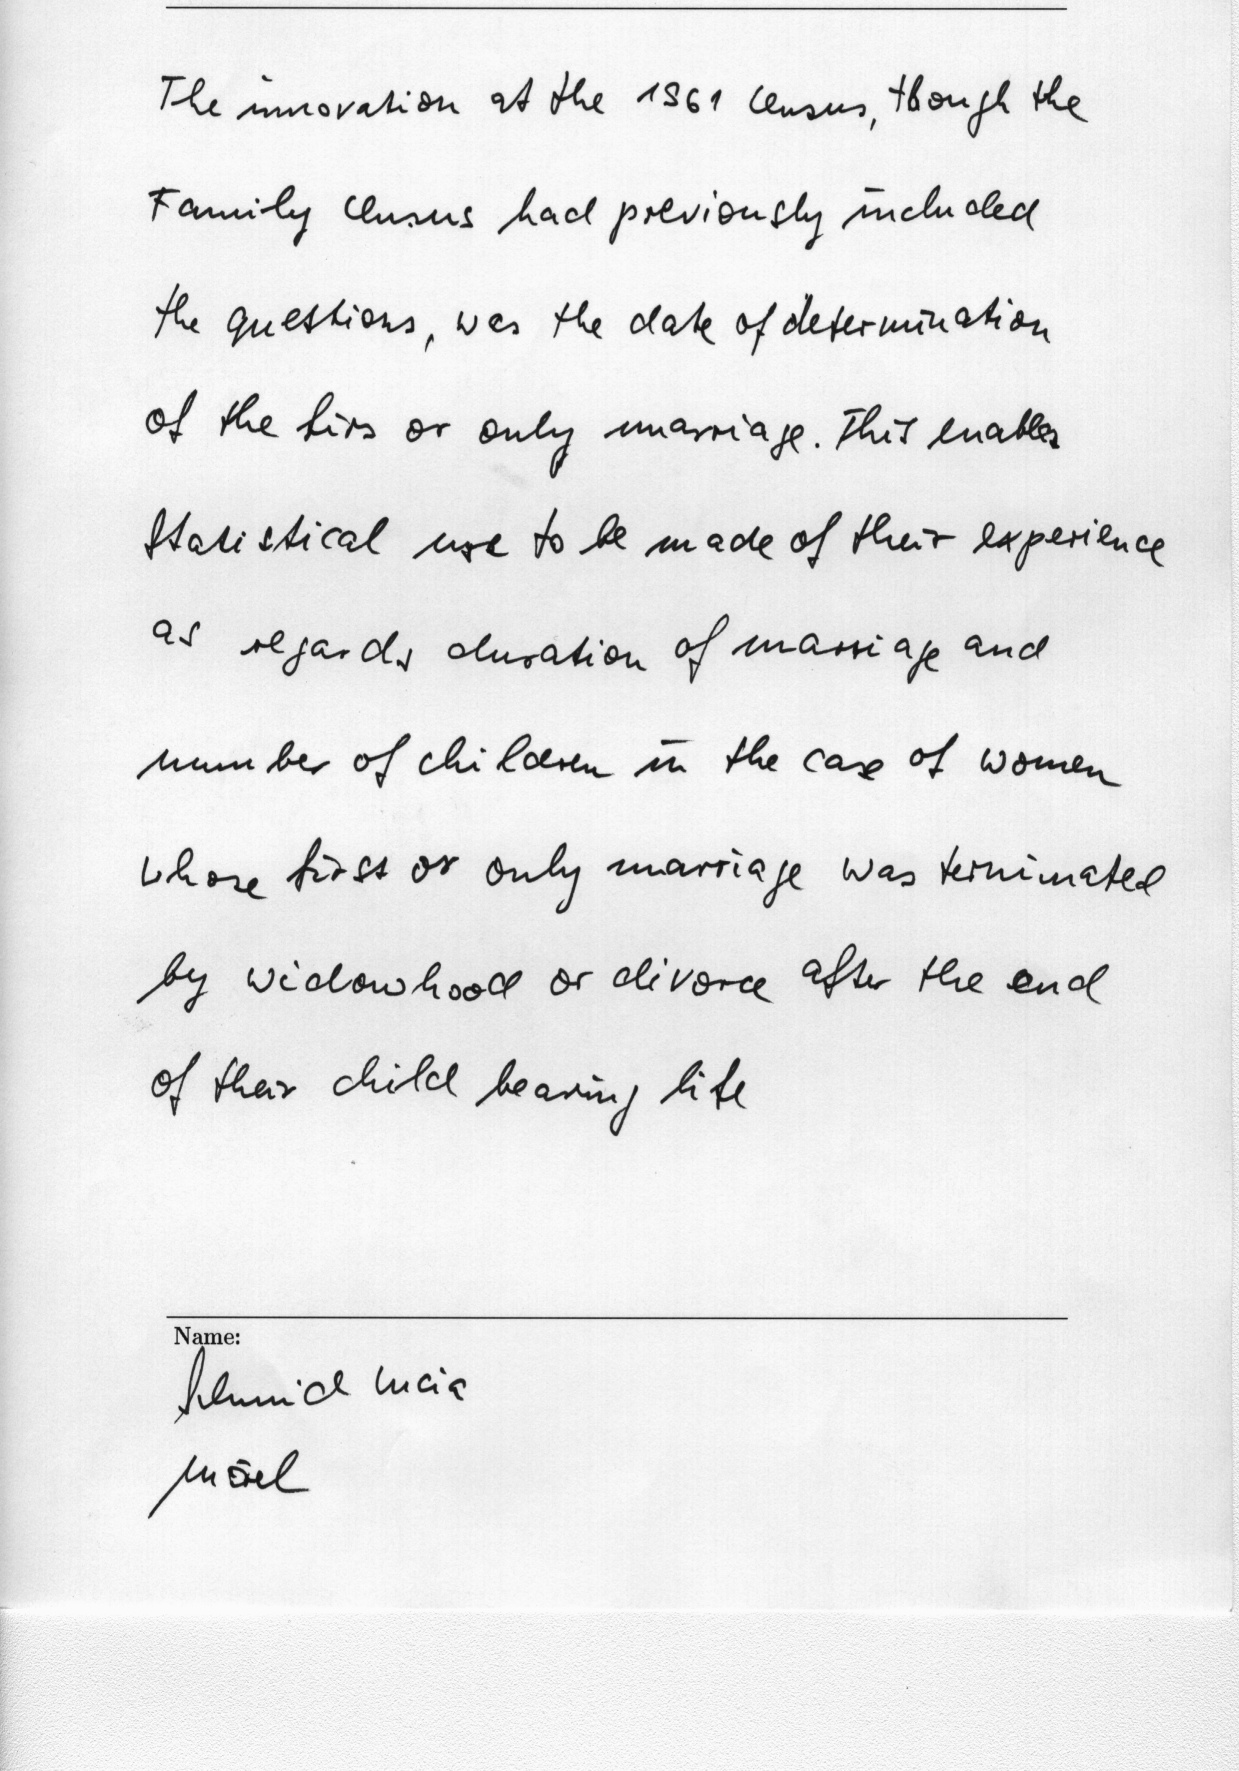 The innovation at the 1961 Census, though the
Family Census had previously included
the questions, was the date of determination
of the firs or only marriage. This enables
statistical use to be made of their experience
as regards duration of marriage and
number of children in the case of women
whose first or only marriage was terminated
by widowhood or divorce after the end
of their child bearing life
Name:
Schmid Lucia